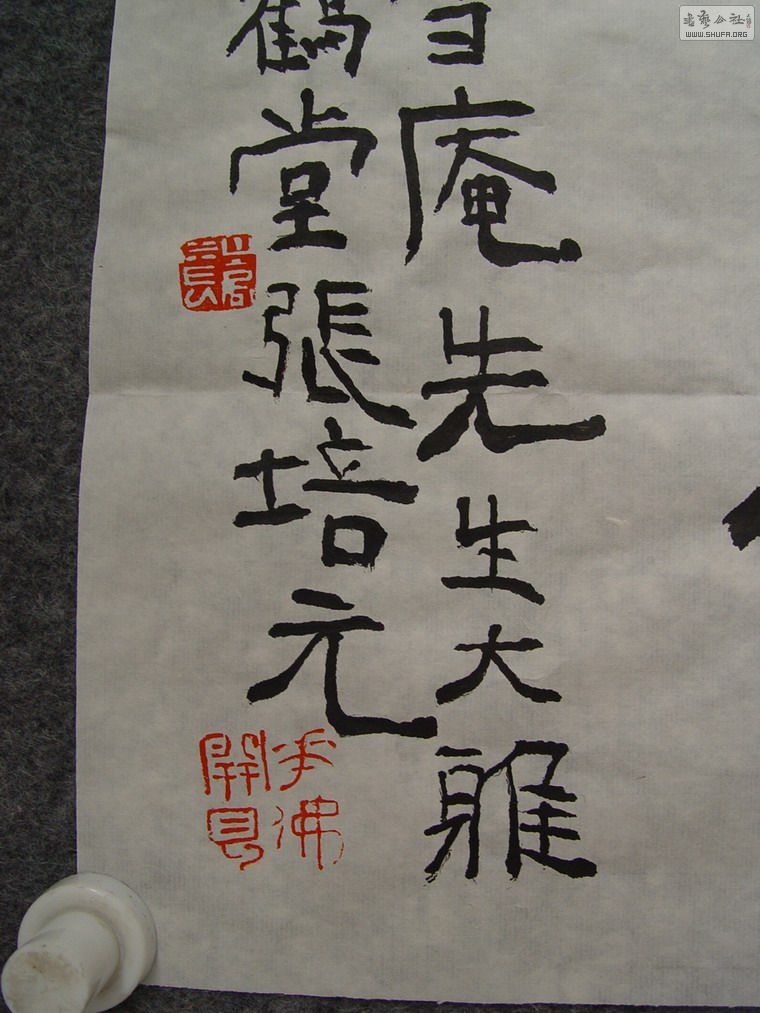 庵先生大雅
鶴堂張培元
花佛
開見
書藝公社
WWW.SHUFA.ORG